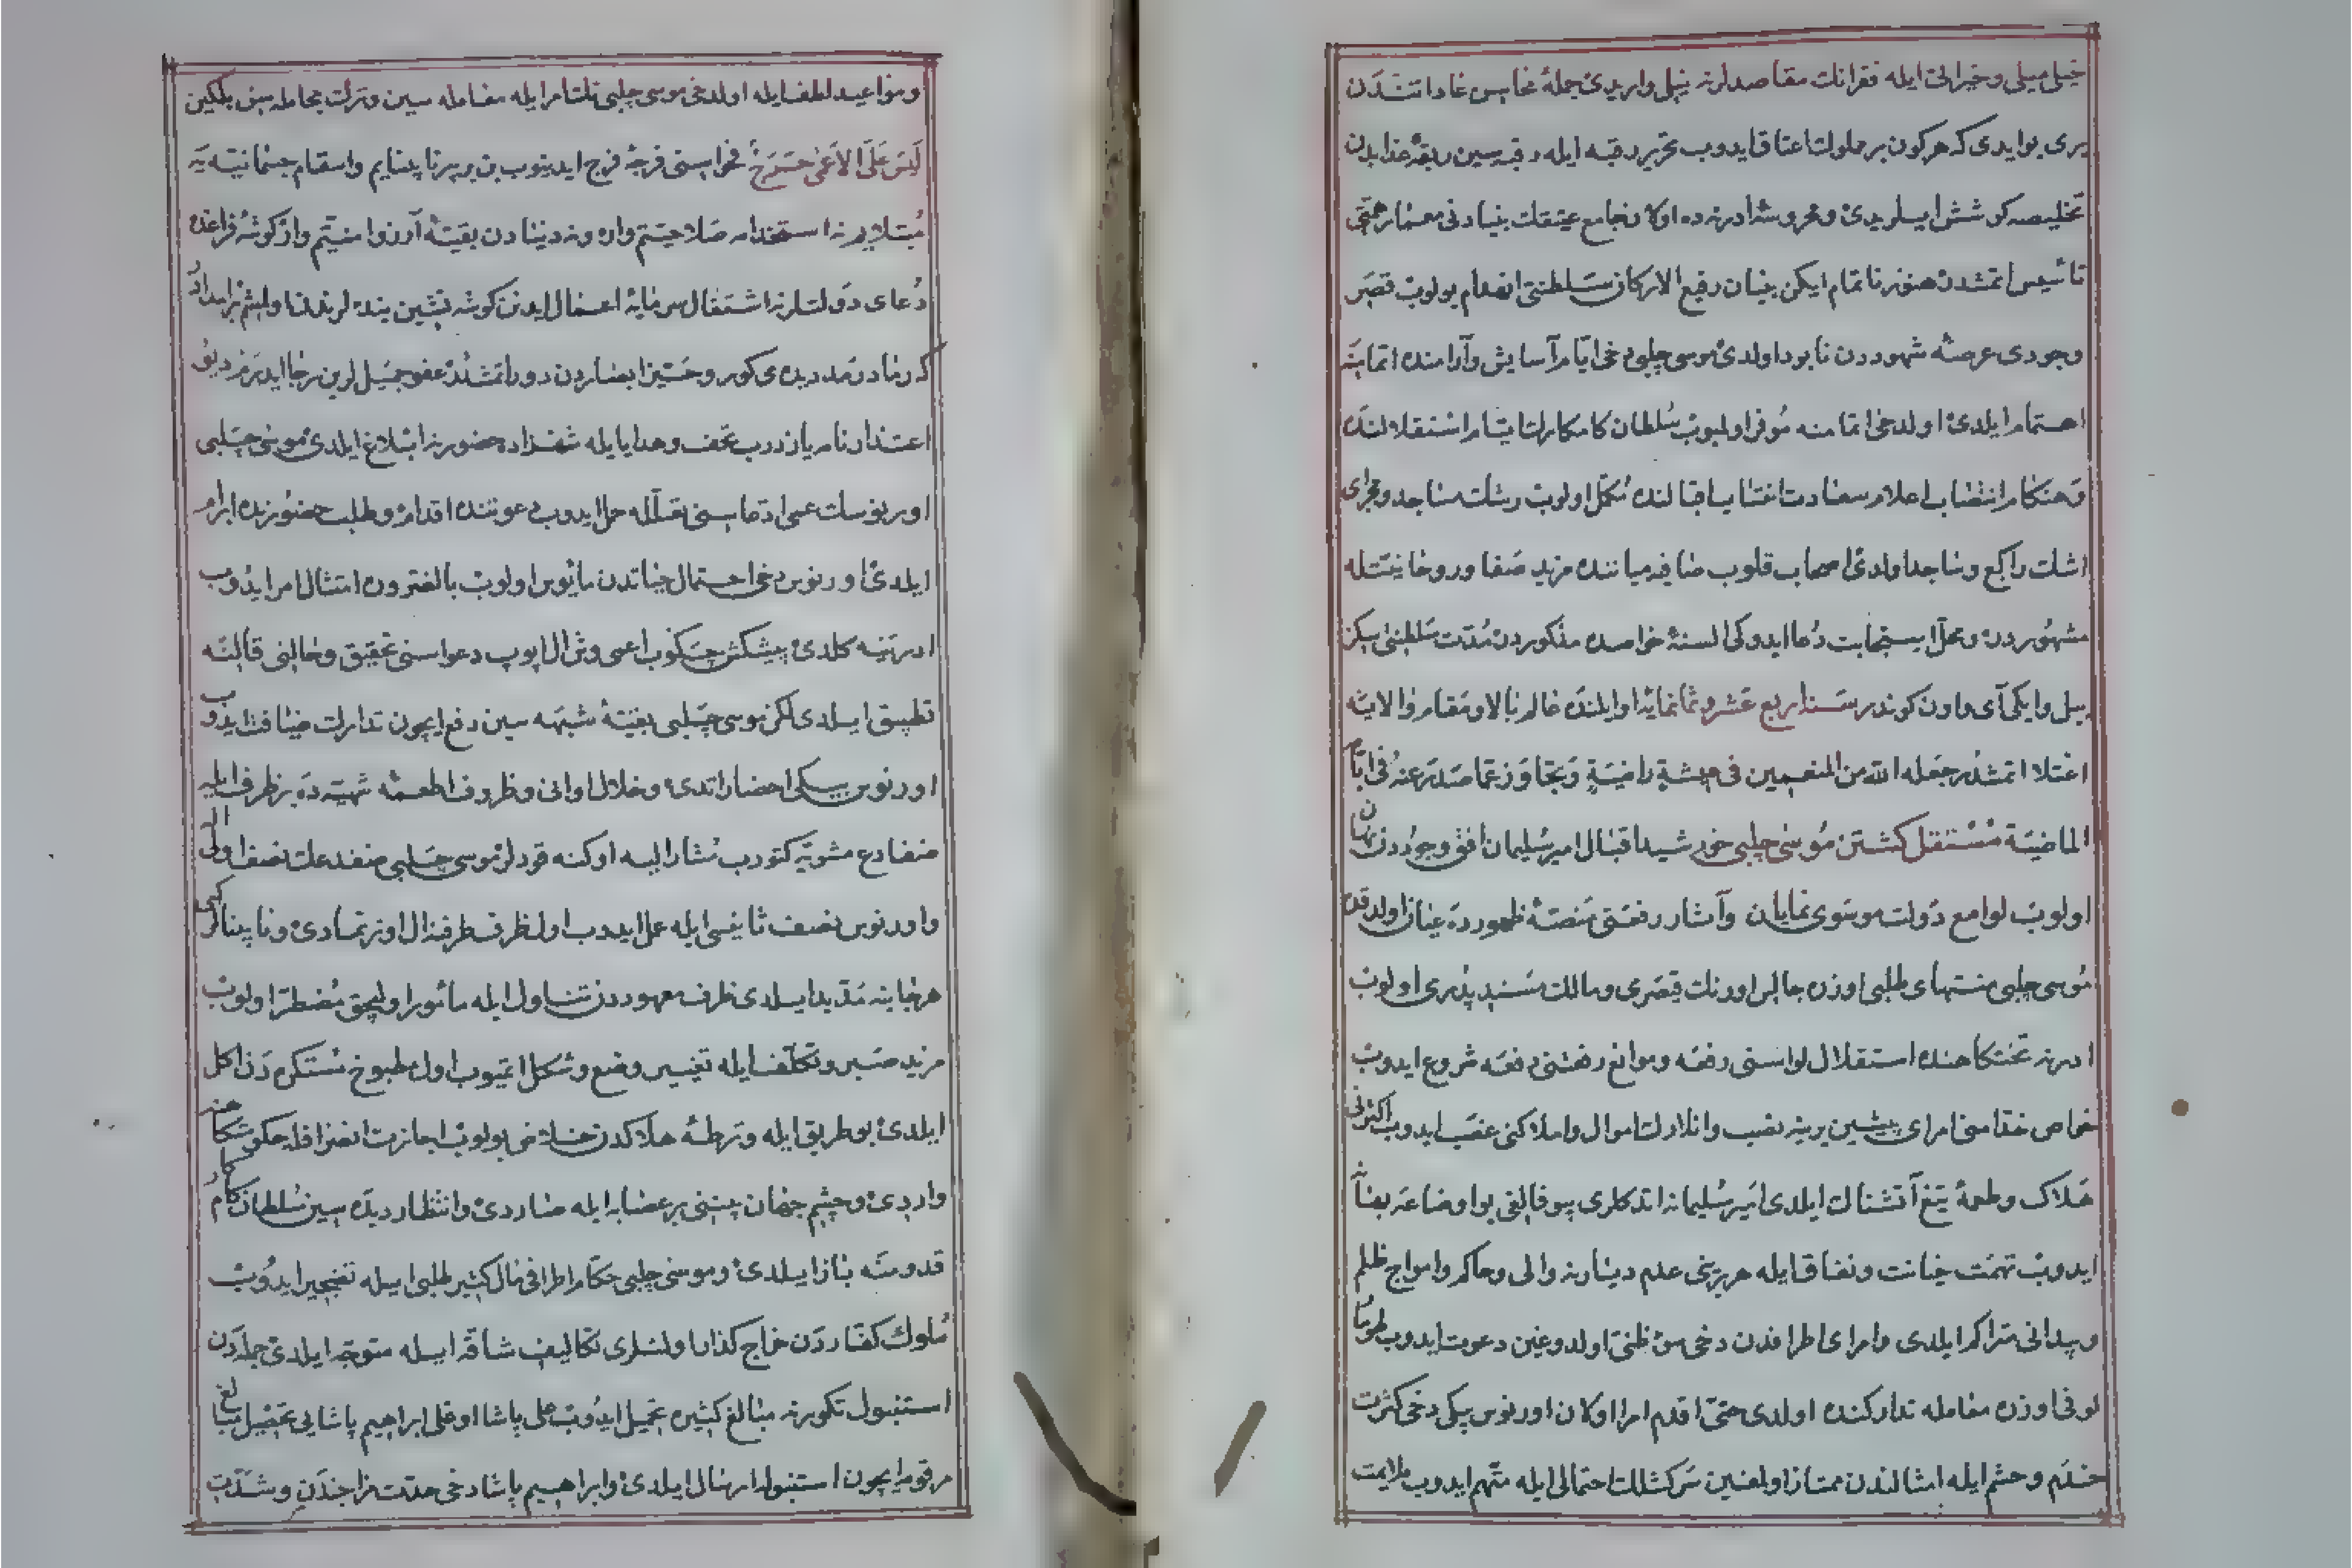 خیل میلی و خیراتی ایله فقرانك مقاصدلرنه نیل وار یدی جملهٔ محاسن عاداتندن
بری بو ایدی که هر کون بر مملوك اعتاق ایدوب تحریر رقبه ایله رقبه سین ربقهٔ عذابدن
تخلیصه کوشش ایلریدی و محروسهٔ ادرنه ده اولان جامع عتیقك بنیادنی معمار همتی
تأسیس اتمشدی هنوز ناتمام ایکن بنیان رفیع الارکان سلطنتی انهدام بولوب قصر
وجودی عرصهٔ شهوددن نابود اولدی موسی چلبی دخی ایام آسایش و آرامنده اتمامنه
اهتمام ایلدی اولدخی اتمامنه موفق اولمیوب سلطان کامکارك ایام استقلالنده
و هنکام انتصاب اعلام سعادت انتساب اقبالنده مکمل اولوب رشك مساجد و محرای
اشك راکع و ساجد اولدی اصحاب قلوب صافیه میاننده مزید صفا و روحانیتله
مشهوردر و محل استجابت دعا ایدوکی السنهٔ خواصده مذکوردر مدت سلطنتی سکز
ییل و ایکی آی و اون کوندر سنهٔ اربع عشر و ثمانمائه اوایلنده عالم بالا و مقام والایه
اعتلا اتمشدر جعله الله من المنعمین فی عیشة راضیة و تجاوز عما صدر عنه فی ایام
الماضیة مستقل کشتن موسی چلبی خورشید اقبال امیر سلیمان افق وجوددن نهان
اولوب لوامع دولت موسوی نمایان و آثار رفعتی منصهٔ ظهورده عیان اولدقده
موسی چلبی منتهای طلبی اوزره جالس اورنك قیصری و مالك مسند پدری اولوب
ادرنه تختکاهنده استقلال لواسنی رفعه و موانع رفعتنی دفعه شروع ایدوب
خواص خدامنی امرای پیشین یرینه نصب و انلارك اموال و املاکنی غصب ایدوب اکثرنی
هلاك و طعمهٔ تیغ آتشناك ایلدی امیر سلیمانه اتدکلری بیوفالغی بو اوضاعه بهانه
ایدوب تهمت خیانت و نفاق ایله هر برینی عدم دیارنه والی و حاکم و امواج ظلم
و بیدادنی متراکم ایلدی و امرای اطرافدن دخی سوء ظنی اولدوغین دعوت ایدوب طوعا
او فی اوزره معامله تدارکنده اولدی حتی اقدم امرا اولان اورنوس بیکی دخی کثرت
خدم و حشم ایله امثالندن ممتاز اولمغین سرکشلك احتمالی ایله متهم ایدوب ملایمت
و مواعید لطف ایله اولدخی موسی چلبی تلتام ایله معامله سین و ترك مجامله سین بیلکین
لیس علی الاعمی حرج فحواسنی فرجهٔ فرج ایدینوب بن بر پیر نابینایم و اسقام جسمانیه یه
مبتلایم نه استخدامه صلاحیتم وار و نه دنیادن بقیهٔ آرزو امنیتم وار کوشهٔ فراغده
دعای دولتلرنه اشتغال سرمایهٔ اعمال ایدن کوشه نشین بنده لرندن اولمشم بر امداد
که رماد رمد دیدهٔ کور و حسین ابصاردن دور اتمشدر عفو جمیللرین رجا ایدرم دیو
اعتذارنامه یازدروب تحف و هدایا ایله شهزاده حضورنه ابلاغ ایلدی موسی چلبی
اورنوسك عمی ادعاسنی تعلله حمل ایدوب دعوتنده اقدام و طلب حضورنده ابرام
ایلدی اورنوس دخی احتمال حیاتدن مأیوس اولوب بالضروره امتثال امر ایدوب
ادرنه یه کلدی پیشکش چکوب اعمی و شل اولوب دعواسنی تحقیق و حالنی قالنه
تطبیق ایلدی لکن موسی چلبی بقیهٔ شبهه سین دفع ایچون تدارك ضیافت ایدوب
اورنوس بیکی احضار اتدی و خلال اوانی و ظروف اطعمهٔ شهیه ده بر ظرف ایله
ضفادع مشویه کتوردب مشار الیه اوکنه قودلر موسی چلبی ضفدعك نصف اولی
و اورنوس نصف ثانیسی ایله عمل ایدوب اول ظرف طرفنه ال اوزتمادی و نابینالر کبی
هر جانبه مد ید ایلدی ظرف معهوددن تناول ایله مأمور اولیجق مضطر اولوب
مزید صبر و تکلف ایله تغییر وضع و شکل اتمیوب اول مطبوخ مستکرهدن اکل
ایلدی بو طریق ایله ورطهٔ هلاکدن خلاص بولوب اجازت انصراف ایله حکومتکاهنه
واردی و چشم جهان بینی بر عصابه ایله صاردی و انتظار دیده سین سلطان کامکار
قدومنه باز ایلدی و موسی چلبی حکام اطرافی مال کثیر طلبی ایله تفجیر ایدوب
ملوك کفاردن خراج کذار اولنلری تکالیف شاقه ایله متوجه ایلدی جمله دن
استنبول تکورنه مبالغ کثیره تحمیل ایدوب علی پاشا اوغلی ابراهیم پاشایی تحصیل مبالغ
مرقومه ایچون استنبوله ارسال ایلدی و ابراهیم پاشا دخی حدت مزاجندن و شدت